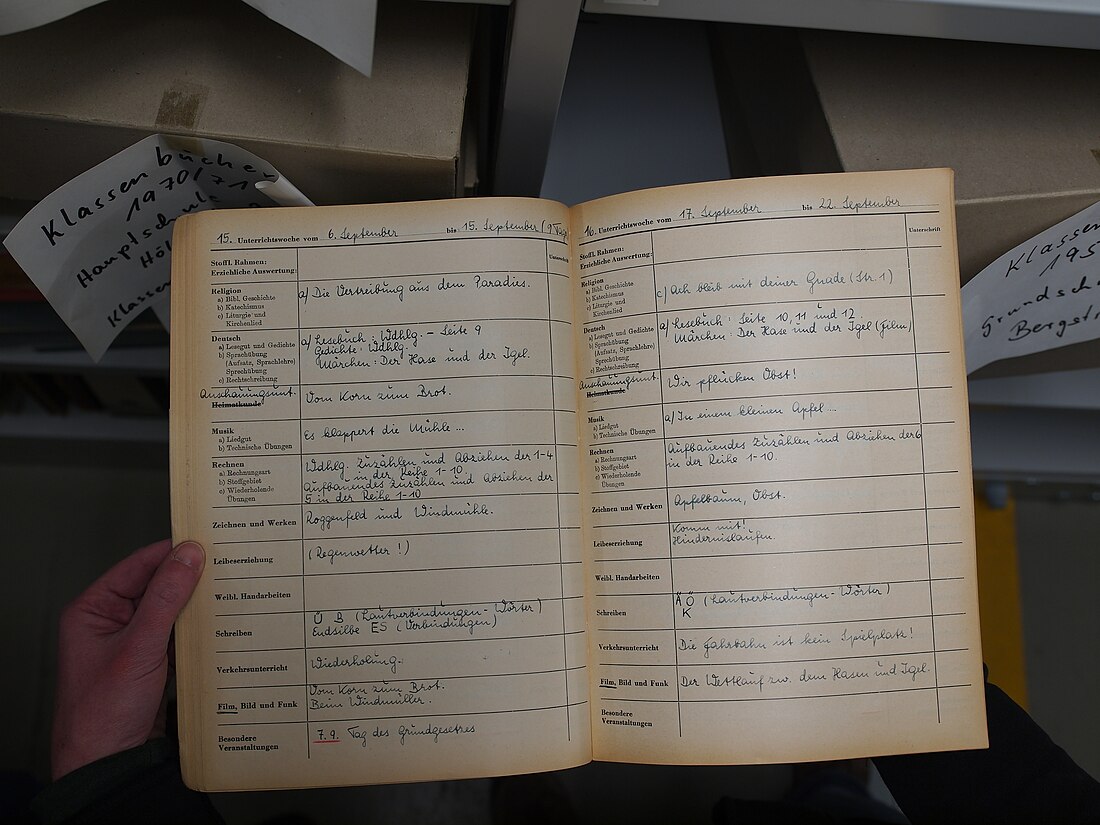 Klassenbücher
1970/71
Hauptschule
Klassen
15. Unterrichtswoche vom 6. September bis 15. September (9 Tage
Unterschrift
Stoffl. Rahmen:
Erziehliche Auswertung:
Religion
a) Bibl. Geschichte
b) Katechismus
c) Liturgie und
Kirchenlied
a) Die Vertreibung aus dem Paradies.
Deutsch
a) Lesegut und Gedichte
b) Sprachübung
(Aufsatz, Sprachlehre)
Sprechübung
c) Rechtschreibung
a) Lesebuch: Wdhlg. - Seite 9
Gedichte: Wdhlg.
Märchen: Der Hase und der Igel.
Anschauungsunt.
Heimatkunde
Vom Korn zum Brot.
Musik
a) Liedgut
b) Technische Übungen
Es klappert die Mühle ...
Rechnen
a) Rechnungsart
b) Stoffgebiet
c) Wiederholende
Übungen
Wdhlg. Zuzählen und Abziehen der 1-4
in der Reihe 1-10.
Aufbauendes Zuzählen und Abziehen der
5 in der Reihe 1-10
Zeichnen und Werken
Roggenfeld und Windmühle.
Leibeserziehung
(Regenwetter!)
Weibl. Handarbeiten
Schreiben
Ü B (Lautverbindungen - Wörter)
Endsilbe ES (Verbindungen)
Verkehrsunterricht
Wiederholung.
Film, Bild und Funk
Vom Korn zum Brot.
Beim Windmüller.
Besondere
Veranstaltungen
7.9. Tag des Grundgesetzes
16. Unterrichtswoche vom 17. September bis 22. September
Unterschrift
Stoffl. Rahmen:
Erziehliche Auswertung:
Religion
a) Bibl. Geschichte
b) Katechismus
c) Liturgie und
Kirchenlied
c) Ach bleib mit deiner Gnade (Str. 1)
Deutsch
a) Lesegut und Gedichte
b) Sprachübung
(Aufsatz, Sprachlehre)
Sprechübung
c) Rechtschreibung
a) Lesebuch: Seite 10, 11 und 12.
Märchen: Der Hase und der Igel (Film)
Anschauungsunt.
Heimatkunde
Wir pflücken Obst!
Musik
a) Liedgut
b) Technische Übungen
a) In einem kleinen Apfel ...
Rechnen
a) Rechnungsart
b) Stoffgebiet
c) Wiederholende
Übungen
Aufbauendes Zuzählen und Abziehen der 6
in der Reihe 1-10.
Zeichnen und Werken
Apfelbaum, Obst.
Leibeserziehung
Komm mit!
Hindernislaufen.
Weibl. Handarbeiten
Schreiben
Ä Ö (Lautverbindungen - Wörter)
K
Verkehrsunterricht
Die Fahrbahn ist kein Spielplatz!
Film, Bild und Funk
Der Wettlauf zw. dem Hasen und Igel.
Besondere
Veranstaltungen
Klassen
195
Grundsch
Bergst